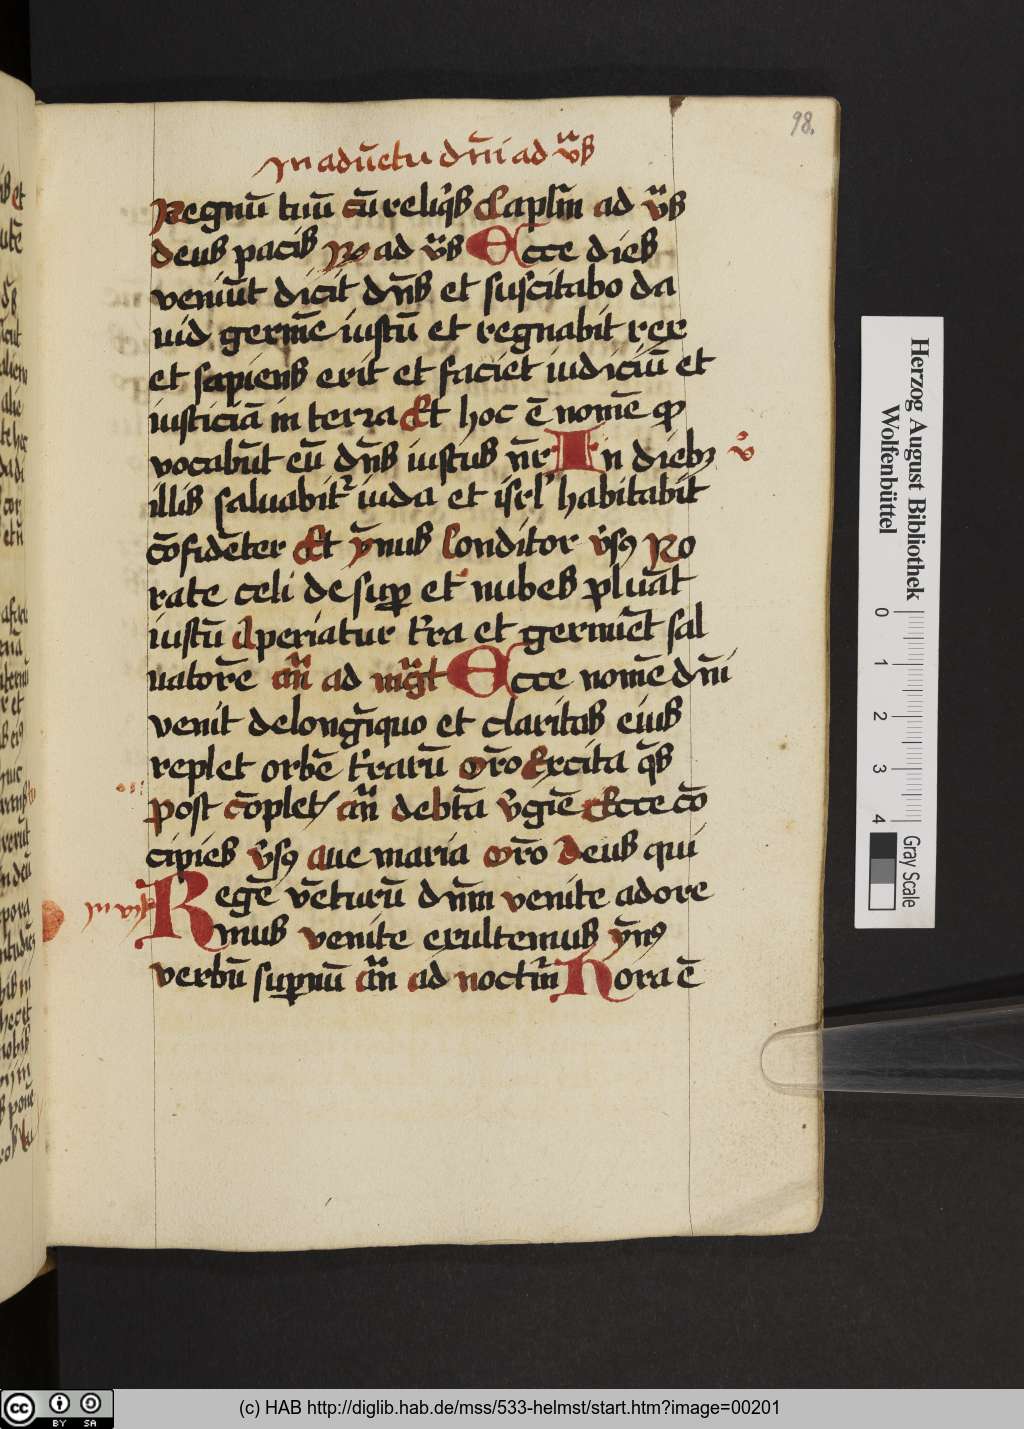 98.
In adue̅tu dn̅i ad vs̅
Regnu̅ tuu̅ cu̅ reliq̅s Capl̅m ad vs̅
deus pacis Ro ad vs̅ Ecce dies
veniu̅t dicit dn̅s et suscitabo da
uid germe̅ iustu̅ et regnabit rex
et sapiens erit et faciet iudiciu̅ et
iusticia̅ in terra Et hoc e̅ nome̅ qd̅
vocabu̅t eu̅ dn̅s iustus nr̅ In dieb; v̊
illis saluabit᷑ iuda et isrl᷑ habitabit
co̅fide̅ter Et ym̅nus Conditor vs̅ꝰ Ro
rate celi desup̱ et nubes plua̅t
iustu̅ Aperiatur t᷑ra et germi̅et sal
uatore̅ an̅ ad mg̅t Ecce nome̅ dn̅i
venit de longi̅quo et claritas eius
replet orbe̅ t᷑raru̅ or̅o Excita qs̅
Post co̅plet̛ an̅ debta̅ v᷑gie̅ Ecce co̅
cipies vs̅ꝰ Aue maria or̅o Deus qui
In vi᷑t Rege̅ ve̅turu̅ dn̅m venite adore
mus venite exultemus ym̅nꝰ
verbu̅ sup̱nu̅ an̅ ad noct᷑n Hora e̅
Herzog August Bibliothek
Wolfenbüttel
0 1 2 3 4
Gray Scale
cc BY SA
(c) HAB http://diglib.hab.de/mss/533-helmst/start.htm?image=00201